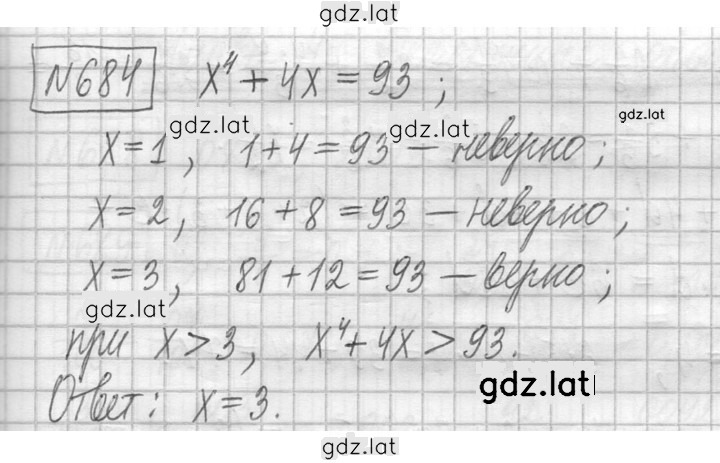 gdz.lat
№684 x⁴ + 4x = 93 ;
gdz.lat gdz.lat gdz.lat
x = 1 , 1 + 4 = 93 — неверно ;
x = 2 , 16 + 8 = 93 — неверно ;
x = 3 , 81 + 12 = 93 — верно ;
gdz.lat
при x > 3 , x⁴ + 4x > 93 .
gdz.lat
Ответ : x = 3 .
gdz.lat